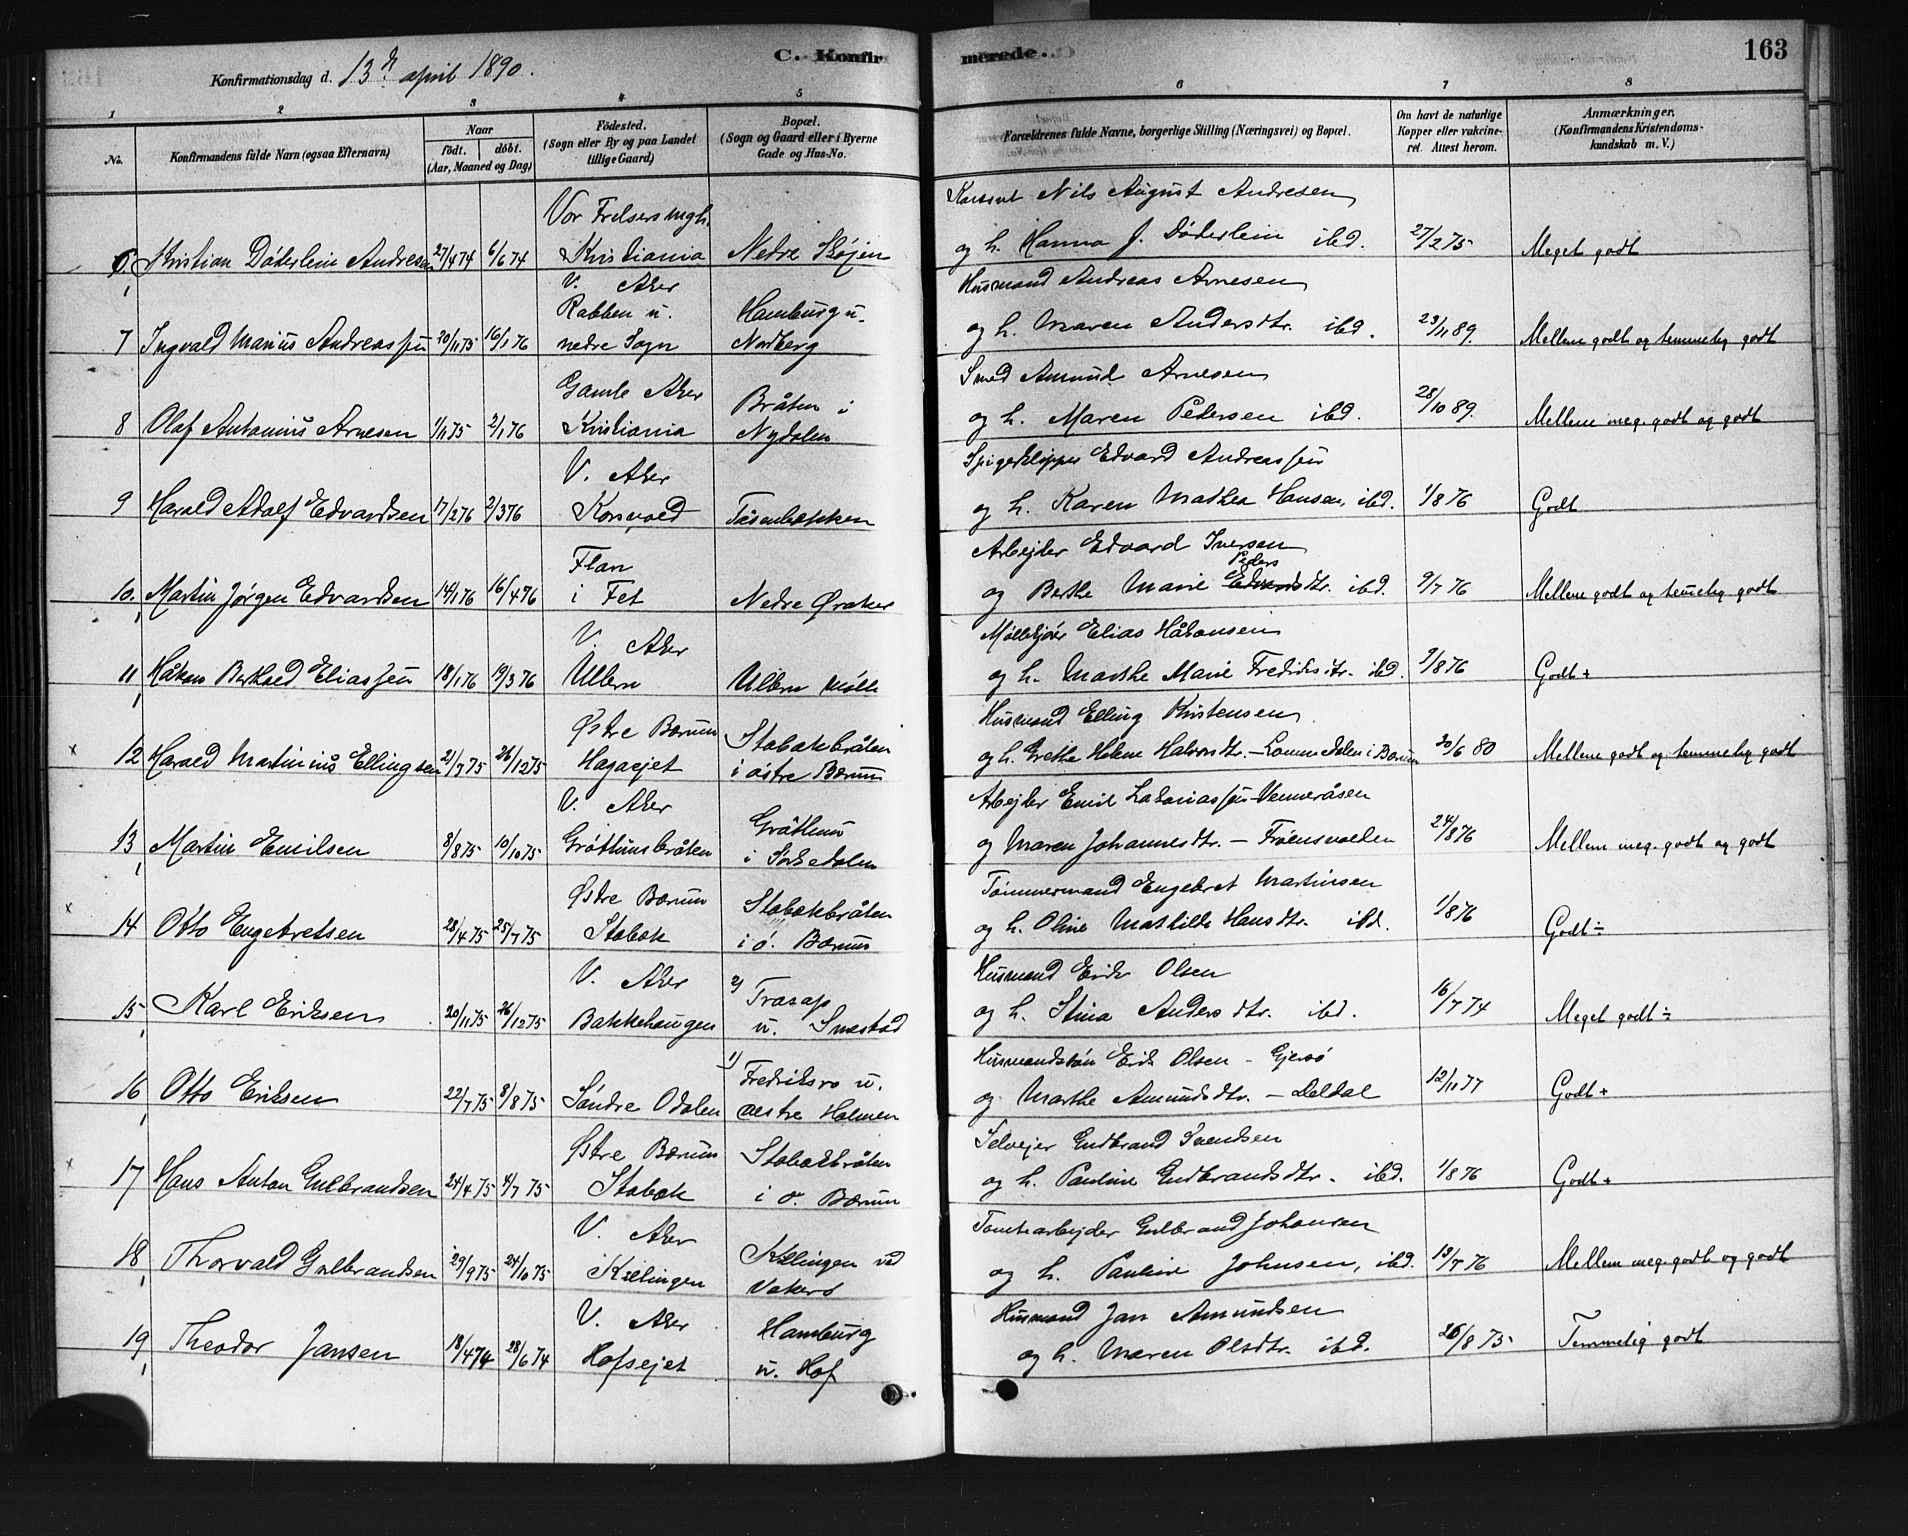 C. Konfirmerede.
163
Konfirmationsdag d. 13de april 1890.
1 2 3 4 5 6 7 8
No. Konfirmandens fulde Navn (ogsaa Efternavn) Naar födt. döbt. (Aar, Maaned og Dag) Födested. (Sogn eller By og paa Landet tillige Gaard) Bopæl. (Sogn og Gaard eller i Byerne Gade og Hus-No. Forældrenes fulde Navne, borgerlige Stilling (Næringsvei) og Bopæl. Om havt de naturlige Kopper eller vakcineret. Attest herom. Anmærkninger. (Konfirmandens Kristendomskundskab m. V.)
Vor Frelsers mgh. Nils August Andresen
6. Kristian Døderlein Andresen 27/4 74 6/6 74 Kristiania Nedre Skøjen og h. Hanna J. Døderlein ibd. 27/2 75 Meget godt
V. Aker Husmand Andreas Arnesen
Rabben u. Hamburg u.
7 Ingvald Marius Andreassen 20/11 75 16/1 76 nedre Sogn Nordberg og h. Maren Andersdtr. ibd. 23/11 89. Mellem godt og temmelig godt
Gamle Aker Bråten i Smed Amund Arnesen
8 Olaf Antonius Arnesen 1/11 75 2/1 76 Kristiania Nydalen og h. Maren Pedersen ibd. 28/10 89. Mellem meg. godt og godt
V. Aker Spigerklipper Edvard Andreassen
9 Harald Adolf Edvardsen 17/2 76 2/3 76 Korsvold Tåsenbakken og h. Karen Mathea Hansen, ibd. 1/8 76 Godt
Flan Arbejder Edvard Iversen
Peders
10. Martin Jørgen Edvardsen 14/1 76 16/4 76 i Fet Nedre Øraker og Berthe Marie Edvardsdtr. ibd. 9/7 76 Mellem godt og temelig godt
V. Aker Møllekjører Elias Håkonsen
11 Håkon Berthold Eliassen 18/1 76 19/3 76 Ullern Ullern Mølle og h. Marthe Marie Fredriksdtr. ibd. 9/8 76 Godt+
Østre Bærum Stabækbråten Husmand Elling Kristensen
x 12 Harald Martinius Ellingsen 21/7 75 26/12 75 Hagaejet i østre Bærum og h. Grethe Helene Halvorsdtr. – Lommedalen i Bærum 20/6 80 Mellem godt og temmelig godt
V. Aker Gråthus Arbejder Emil Zakariassen – Venneråsen
13 Martin Emilsen 8/8 75 10/10 75 Gråthusbråten i Sørkedalen og Maren Johannesdtr. – Frøensvolden 24/8 76 Mellem meg. godt og godt
Østre Bærum Stabækbråten Tømmermand Engebret Martinsen
x 14 Otto Engebretsen 28/4 75 25/7 75 Stabæk i ø. Bærum og h. Oline Mathilde Hansdtr. ibd. 1/8 76 Godt÷
V. Aker 2) Husmand Erik Olsen
15 Karl Eriksen 20/11 75 26/12 75 Bakkehaugen u. Smestad og h. Stina Andersdtr. ibd. 16/7 74 Meget godt÷
1) Fredriksro u. Erik Olsen – Gjersø
16 Otto Eriksen 22/7 75 8/8 75 Søndre Odalen vestre Holmen og Marthe Amundsdtr. – 12/11 77 Godt+
Østre Bærum Stabækbråten Selvejer Gudbrand Svendsen
x 17 Hans Anton Gulbrandsen 24/4 75 4/7 75 Stabæk i ø. Bærum og h. Pauline Gudbrandsdtr. ibd. 1/8 76 Godt+
V. Aker Kællingen ved Tomtearbejder Gulbrand Johansen
18 Thorvald Gulbrandsen 29/9 75 24/10 75 Kællingen Vækerø og h. Pauline Johnsen, ibd. 13/7 76 Mellem meg. godt og godt
V. Aker Hamburg Husmand Jan Amundsen
19 Theodor Jansen 18/4 74 28/6 74 Hofsejet u. Hof og h. Maren Olsdtr. ibd. 26/8 75 Temmelig godt